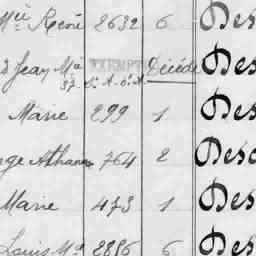 Mie René 2632 6 Des
d Jean Mie EXEMPT Décédé Des
Marie 299 1 Des
ge Athanase 764 2 Des
Marie 473 1 Des
Louis Mie 2886 6 Des